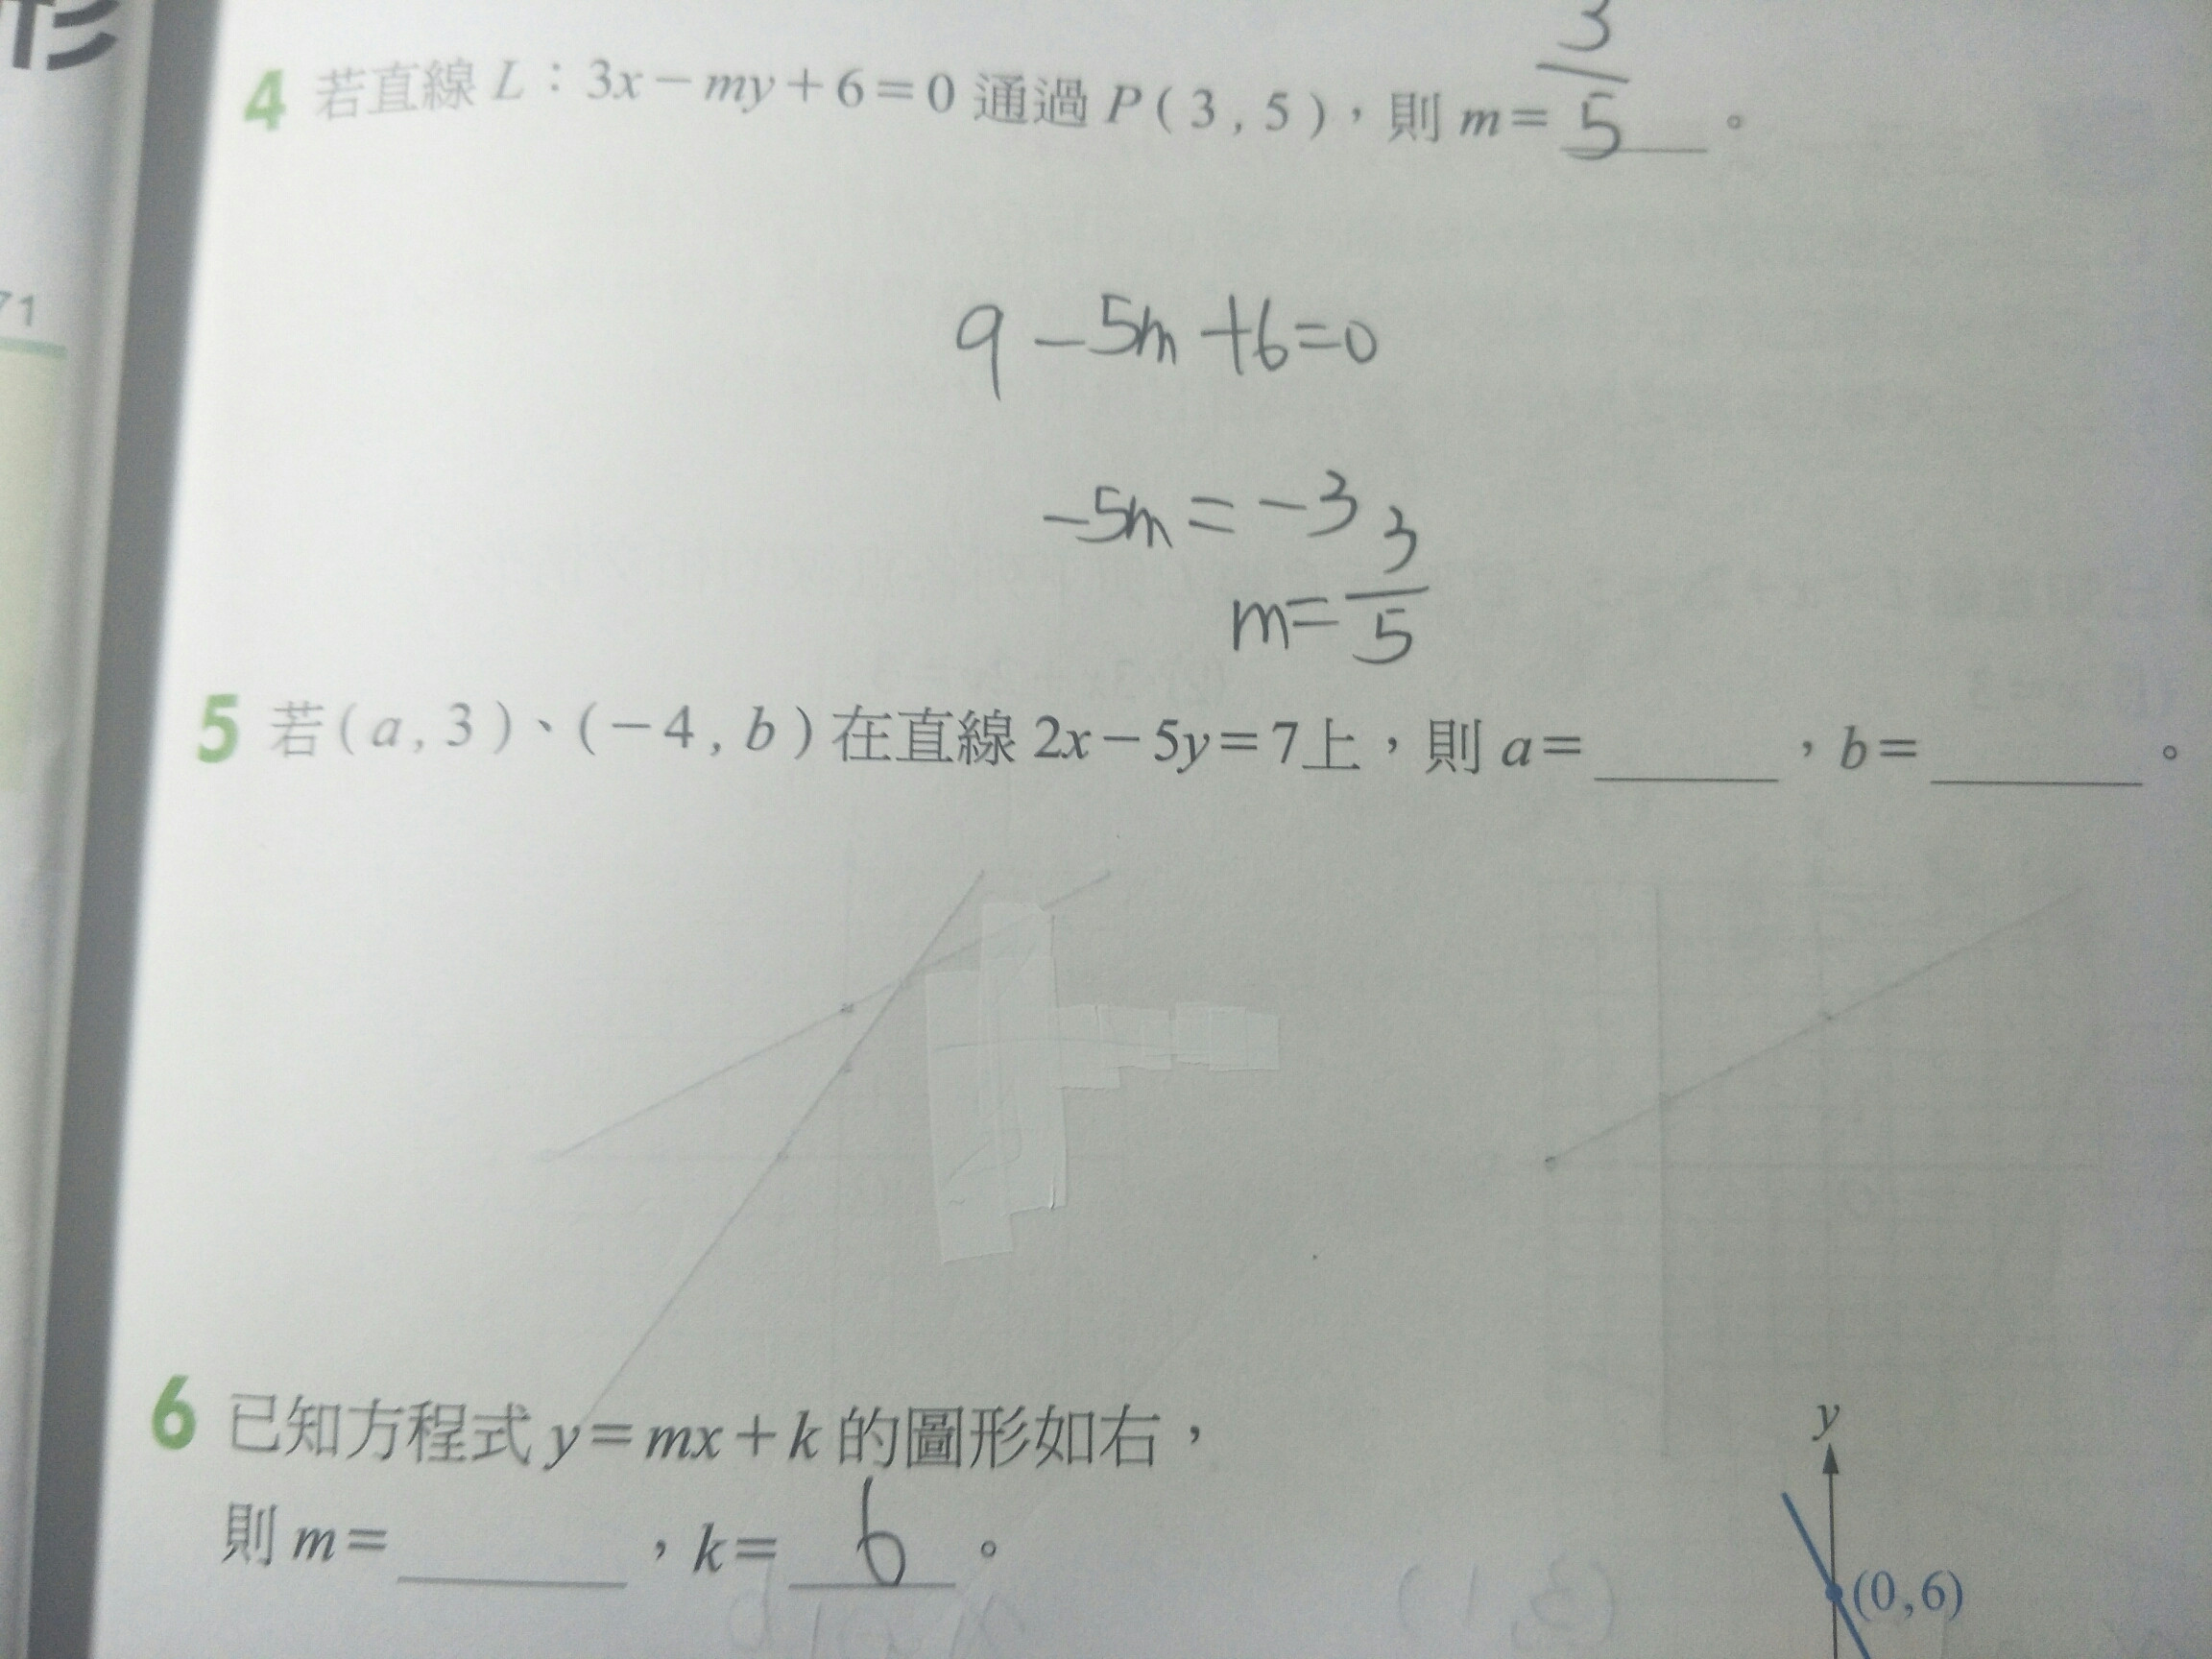 形
71
4 若直線 L：3x－my＋6＝0 通過 P(3,5)，則 m＝3/5。
9－5m＋6＝0
－5m＝－3
m＝3/5
5 若(a,3)、(－4,b)在直線 2x－5y＝7上，則 a＝______，b＝______。
6 已知方程式 y＝mx＋k 的圖形如右，
則 m＝______，k＝6。
y
(0,6)